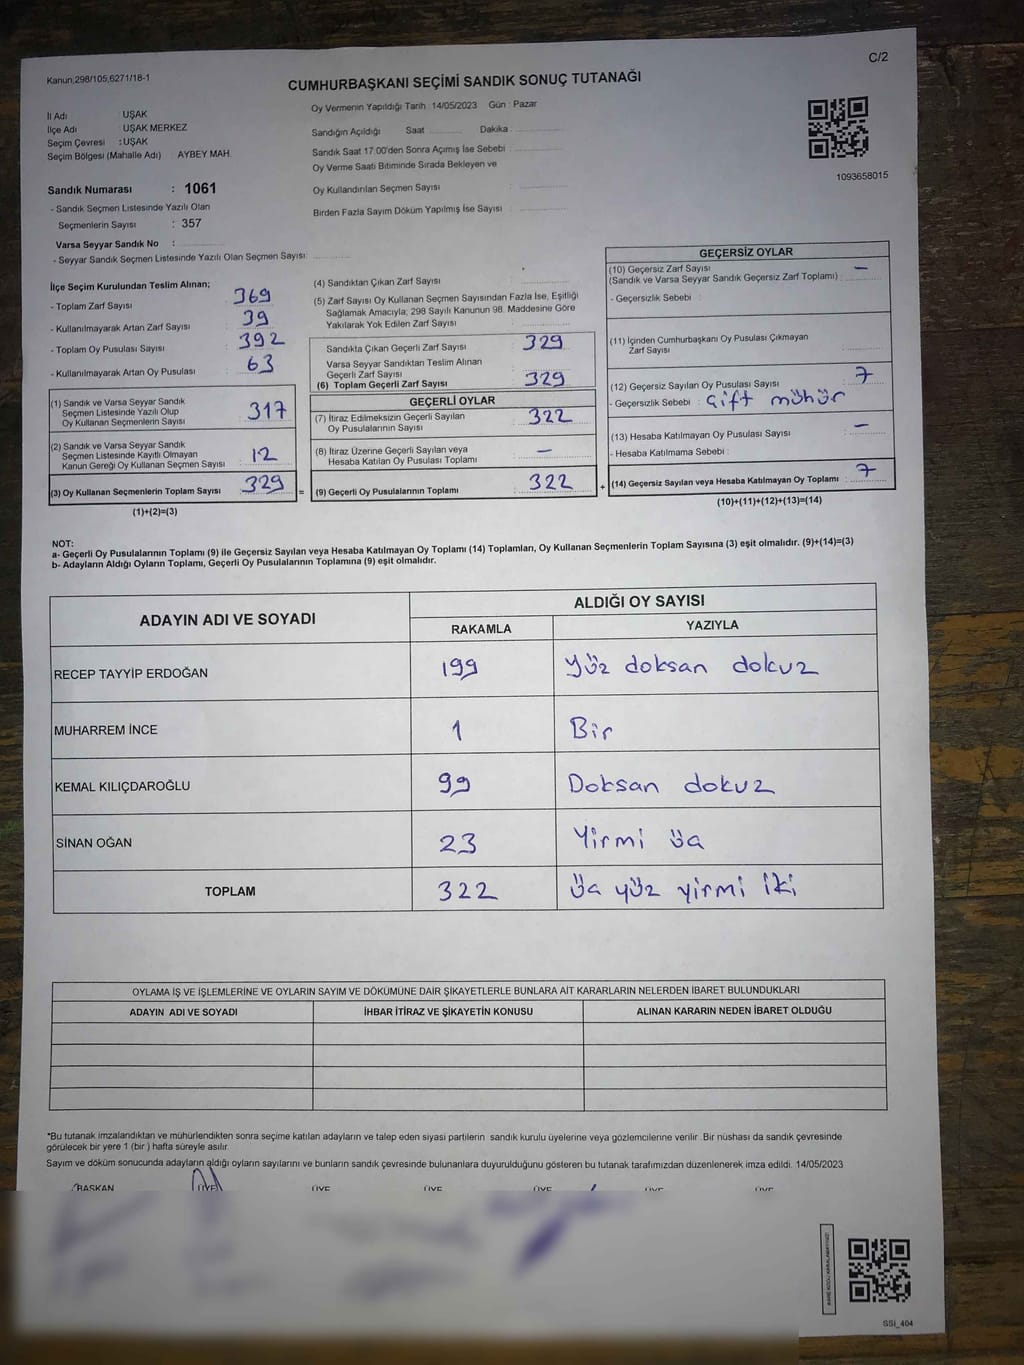 Kanun;298/105,6271/18-1
C/2
CUMHURBAŞKANI SEÇİMİ SANDIK SONUÇ TUTANAĞI
İl Adı : UŞAK
İlçe Adı : UŞAK MERKEZ
Seçim Çevresi : UŞAK
Seçim Bölgesi (Mahalle Adı) : AYBEY MAH.
Sandık Numarası : 1061
- Sandık Seçmen Listesinde Yazılı Olan
Seçmenlerin Sayısı : 357
Varsa Seyyar Sandık No :
- Seyyar Sandık Seçmen Listesinde Yazılı Olan Seçmen Sayısı:
Oy Vermenin Yapıldığı Tarih :14/05/2023 Gün : Pazar
Sandığın Açıldığı Saat Dakika :
Sandık Saat 17:00'den Sonra Açımış İse Sebebi :
Oy Verme Saati Bitiminde Sırada Bekleyen ve
Oy Kullandırılan Seçmen Sayısı :
Birden Fazla Sayım Döküm Yapılmış İse Sayısı :
1093658015
İlçe Seçim Kurulundan Teslim Alınan;
- Toplam Zarf Sayısı : 369
- Kullanılmayarak Artan Zarf Sayısı : 39
- Toplam Oy Pusulası Sayısı : 392
- Kullanılmayarak Artan Oy Pusulası : 63
(1) Sandık ve Varsa Seyyar Sandık
Seçmen Listesinde Yazılı Olup
Oy Kullanan Seçmenlerin Sayısı : 317
(2) Sandık ve Varsa Seyyar Sandık
Seçmen Listesinde Kayıtlı Olmayan
Kanun Gereği Oy Kullanan Seçmen Sayısı : 12
(3) Oy Kullanan Seçmenlerin Toplam Sayısı : 329
(1)+(2)=(3)
=
(4) Sandıktan Çıkan Zarf Sayısı :
(5) Zarf Sayısı Oy Kullanan Seçmen Sayısından Fazla İse, Eşitliği
Sağlamak Amacıyla; 298 Sayılı Kanunun 98. Maddesine Göre
Yakılarak Yok Edilen Zarf Sayısı :
Sandıkta Çıkan Geçerli Zarf Sayısı : 329
Varsa Seyyar Sandıktan Teslim Alınan
Geçerli Zarf Sayısı :
(6) Toplam Geçerli Zarf Sayısı : 329
GEÇERLİ OYLAR
(7) İtiraz Edilmeksizin Geçerli Sayılan
Oy Pusulalarının Sayısı : 322
(8) İtiraz Üzerine Geçerli Sayılan veya
Hesaba Katılan Oy Pusulası Toplamı : —
(9) Geçerli Oy Pusulalarının Toplamı : 322
+
GEÇERSİZ OYLAR
(10) Geçersiz Zarf Sayısı : —
(Sandık ve Varsa Seyyar Sandık Geçersiz Zarf Toplamı)
- Geçersizlik Sebebi :
(11) İçinden Cumhurbaşkanı Oy Pusulası Çıkmayan
Zarf Sayısı :
(12) Geçersiz Sayılan Oy Pusulası Sayısı : 7
- Geçersizlik Sebebi : Çift mühür
(13) Hesaba Katılmayan Oy Pusulası Sayısı : —
- Hesaba Katılmama Sebebi :
(14) Geçersiz Sayılan veya Hesaba Katılmayan Oy Toplamı : 7
(10)+(11)+(12)+(13)=(14)
NOT:
a- Geçerli Oy Pusulalarının Toplamı (9) ile Geçersiz Sayılan veya Hesaba Katılmayan Oy Toplamı (14) Toplamları, Oy Kullanan Seçmenlerin Toplam Sayısına (3) eşit olmalıdır. (9)+(14)=(3)
b- Adayların Aldığı Oyların Toplamı, Geçerli Oy Pusulalarının Toplamına (9) eşit olmalıdır.
ADAYIN ADI VE SOYADI
ALDIĞI OY SAYISI
RAKAMLA YAZIYLA
RECEP TAYYİP ERDOĞAN 199 Yüz doksan dokuz
MUHARREM İNCE 1 Bir
KEMAL KILIÇDAROĞLU 99 Doksan dokuz
SİNAN OĞAN 23 Yirmi üç
TOPLAM 322 Üç yüz yirmi iki
OYLAMA İŞ VE İŞLEMLERİNE VE OYLARIN SAYIM VE DÖKÜMÜNE DAİR ŞİKAYETLERLE BUNLARA AİT KARARLARIN NELERDEN İBARET BULUNDUKLARI
ADAYIN ADI VE SOYADI İHBAR İTİRAZ VE ŞİKAYETİN KONUSU ALINAN KARARIN NEDEN İBARET OLDUĞU
*Bu tutanak imzalandıktan ve mühürlendikten sonra seçime katılan adayların ve talep eden siyasi partilerin sandık kurulu üyelerine veya gözlemcilerine verilir. Bir nüshası da sandık çevresinde
görülecek bir yere 1 (bir) hafta süreyle asılır.
Sayım ve döküm sonucunda adayların aldığı oyların sayılarını ve bunların sandık çevresinde bulunanlara duyurulduğunu gösteren bu tutanak tarafımızdan düzenlenerek imza edildi. 14/05/2023
BAŞKAN ÜYE ÜYE ÜYE ÜYE ÜYE ÜYE
SSI_404